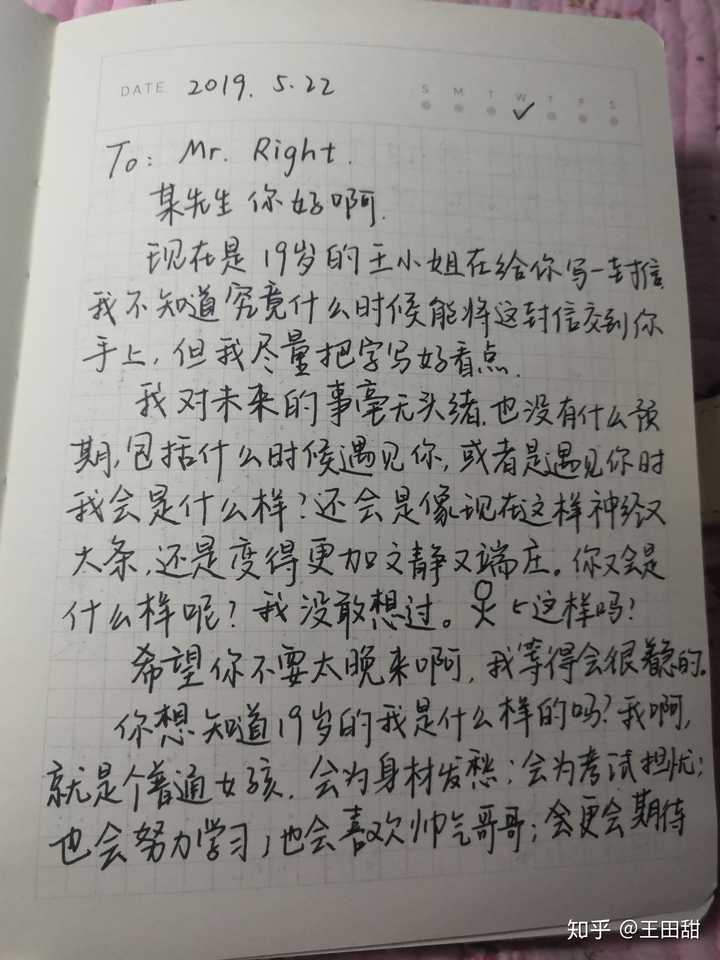 DATE 2019. 5. 22
S M T W T F S
To: Mr. Right.
某先生你好啊.
现在是19岁的王小姐在给你写一封信,
我不知道究竟什么时候能将这封信交到你
手上,但我尽量把字写好看点.
我对未来的事毫无头绪,也没有什么预
期,包括什么时候遇见你,或者是遇见你时
我会是什么样?还会是像现在这样神经又
大条,还是变得更加文静又端庄。你又会是
什么样呢?我没敢想过。这样吗?
希望你不要太晚来啊,我等得会很着急的。
你想知道19岁的我是什么样的吗?我啊,
就是个普通女孩.会为身材发愁;会为考试担忧;
也会努力学习;也会喜欢帅气哥哥;会更会期待
知乎 @王田甜